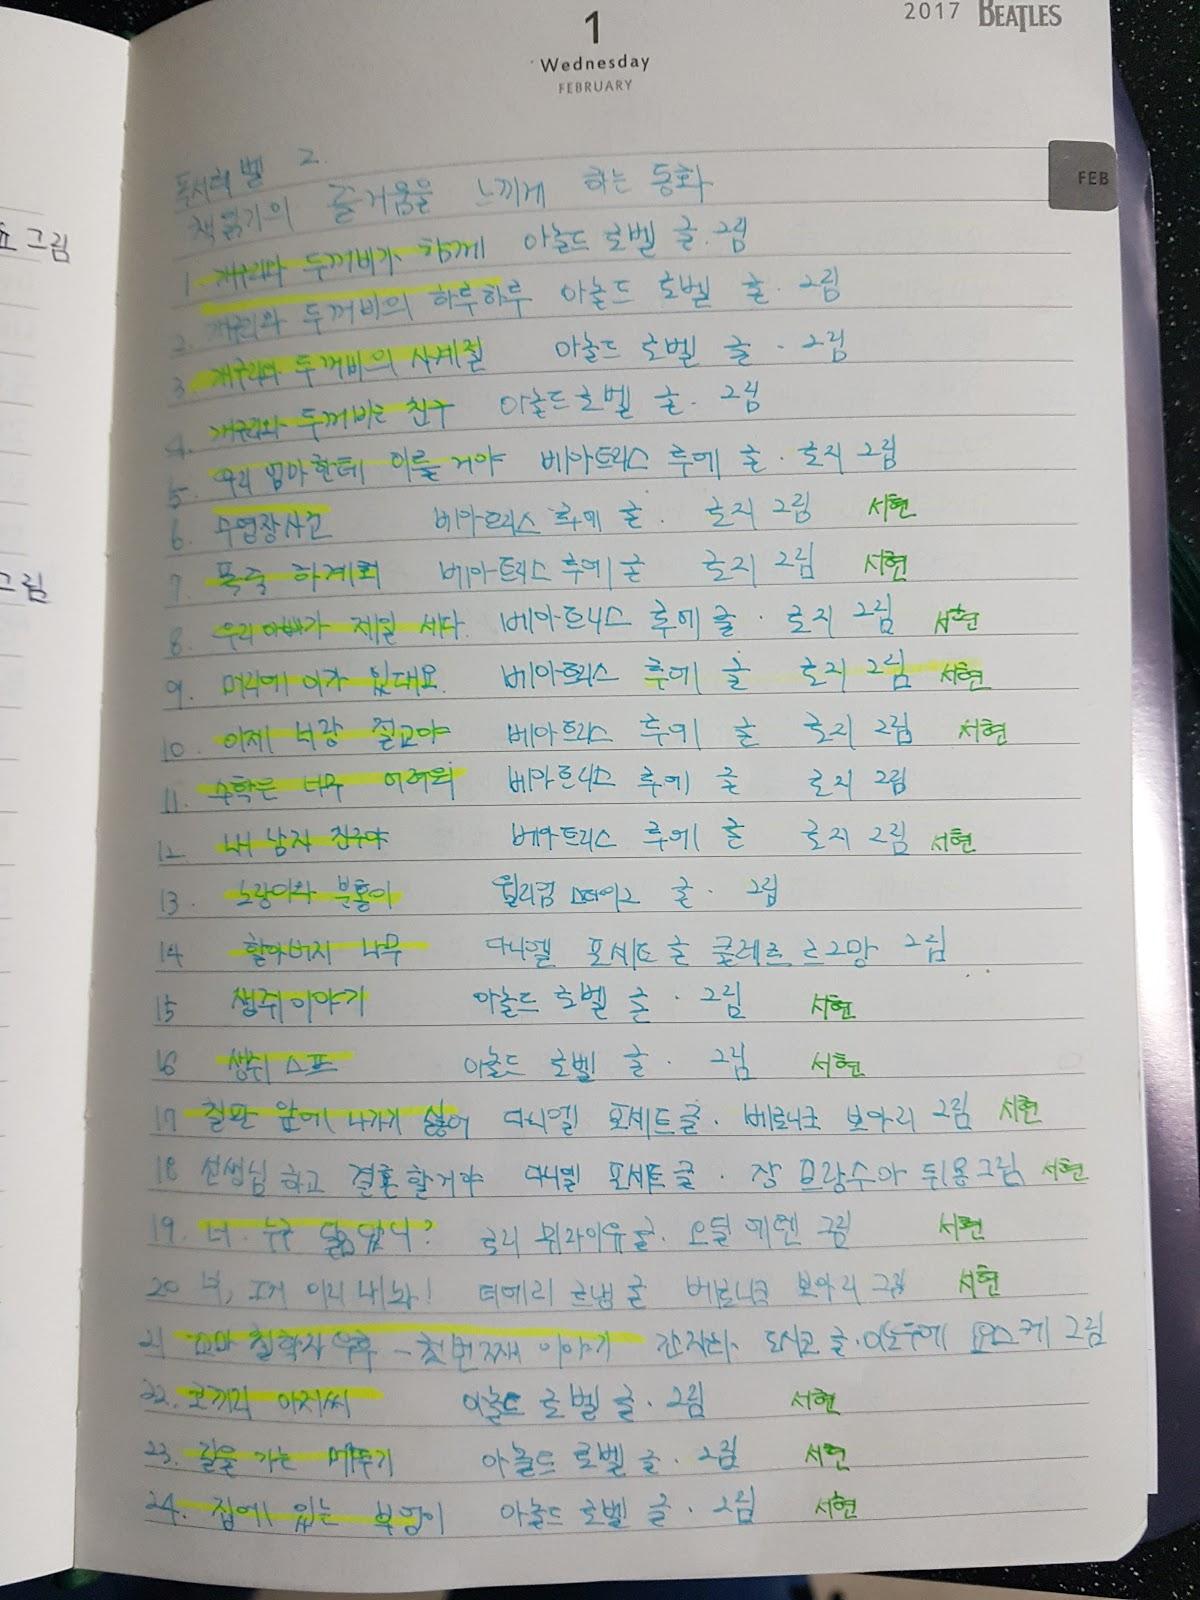 2017 BEATLES
1
Wednesday
FEBRUARY
FEB
쇼 그림
그림
독서레벨 2.
책읽기의 즐거움을 느끼게 하는 동화
1. 개구리와 두꺼비가 함께 아놀드 로벨 글.그림
2. 개구리와 두꺼비의 하루하루 아놀드 로벨 글.그림
3. 개구리와 두꺼비의 사계절 아놀드 로벨 글.그림
4. 개구리와 두꺼비는 친구 아놀드 로벨 글.그림
5. 우리 엄마한테 이를거야 베아트리스 루에 글.로지 그림
6. 수영장사건 베아트리스 루에 글. 로지 그림 서현
7. 폭죽 하계회 베아트리스 루에 글 로지 그림 서현
8. 우리 아빠가 제일 세다. 베아트리스 루에 글. 로지 그림 서현
9. 머리에 이가 있대요. 베아트리스 루에 글 로지 그림 서현
10. 이제 너랑 절교야 베아트리스 루에 글 로지 그림 서현
11. 수학은 너무 어려워 베아트리스 루에 글 로지 그림
12 내 남자 친구야 베아트리스 루에 글 로지 그림 서현
13. 노랑이와 분홍이 윌리엄 스타이그 글. 그림
14 할아버지 나무 다니엘 포세트 글 클레르 르그망 그림
15 생쥐이야기 아놀드 로벨 글.그림 서현
16 생쥐 스프 아놀드 로벨 글. 그림 서현
17 칠판 앞에 나가기 싫어 다니엘 포세트 글. 베로니크 보아리 그림 서현
18 선생님하고 결혼할거야 다니엘 포세트 글. 장 프랑수아 뒤몽 그림 서현
19. 너 누구 닮았니? 로리 뮈라이유 글. 오딜 에렌 그림 서현
20 너, 그거 이리 내놔! 티에리 르냉 글 베로니크 보아리 그림 서현
21 꼬마 철학자 우후 - 첫번째 이야기 간자와 도시코 글. 이노우에 요스케 그림
22. 코끼리 아저씨 아놀드 로벨 글.그림 서현
23. 길을 가는 메뚜기 아놀드 로벨 글.그림 서현
24. 집에 있는 부엉이 아놀드 로벨 글.그림 서현